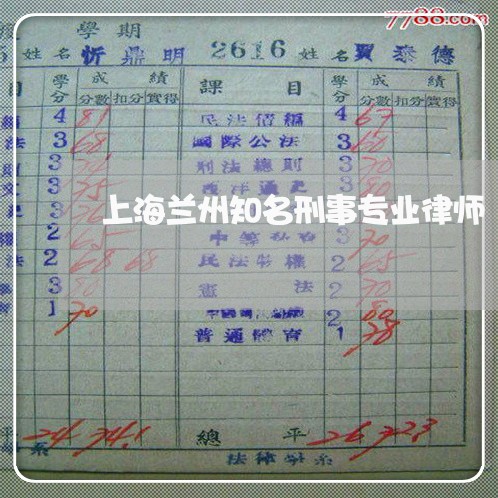 7788.com
學期
姓名 忻鼎明 2616 姓名 賈泰德
目 學分 成績 課目 學分 成績
分數 扣分 實得 分數 扣分 實得
4 81 民法債編 4 67
法 3 68 國際公法 3 60
3 刑法總則 3 70
3 75 西洋通史 3
上海兰州知名刑事专业律师
2 65 3 70
法 2 68 68 民法物權 2 65
3 80 憲法 2 70
育 1 70 2 80
普通體育 1 78
平 24 74.1 總平 26 72.3
系 法律學系